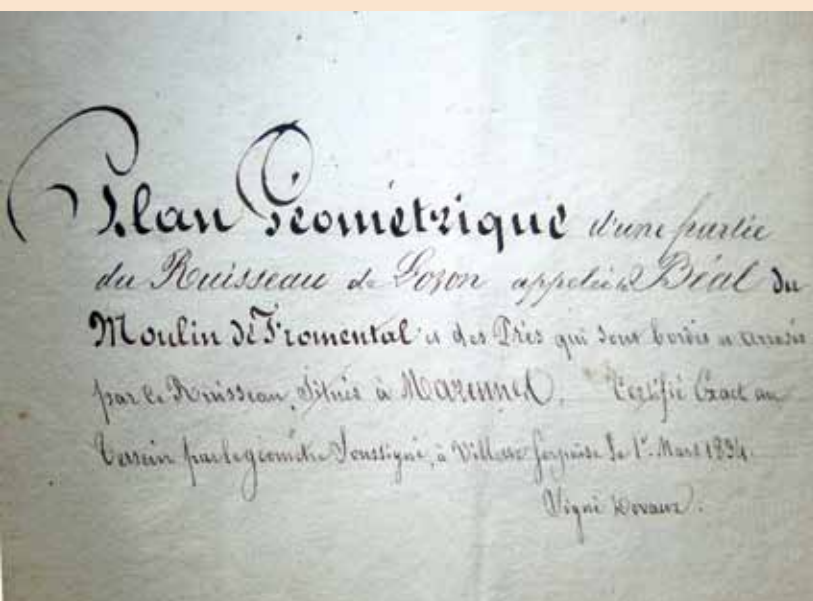 Plan Géométrique d'une partie
du Ruisseau de Gozon appelée Béal du
Moulin de Fromental et des Prés qui sont bordés et arrosés
par le Ruisseau, Situés à Marennes. Certifié Exact au
Terrein par le géomètre Soussigné, à Villette Serpaise le 1er Mars 1834.
Signé